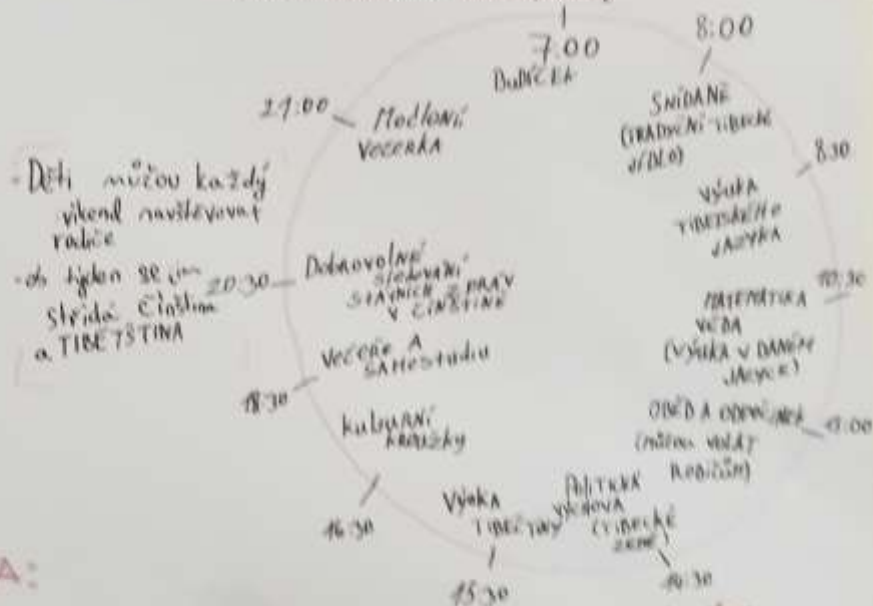 7:00
BUDÍČEK
8:00
SNÍDANĚ
(TRADIČNÍ TIBECKÉ
JÍDLO)
8:30
VÝUKA
TIBETSKÉHO
JAZYKA
10:30
MATEMATIKA
VĚDA
(VÝUKA V DANÉM
JAZYCE)
OBĚD A ODPOČINEK
(můžou volat
RODIČŮM)
:00
POLITICKÁ
VÝCHOVA
(TIBECKÉ
ZEMĚ)
14:30
VÝUKA
TIBEČTINY
15:30
KULTURNÍ
KROUŽKY
16:30
VEČEŘE A
SAMOSTUDIU
18:30
Dobrovolné
SLEDOVÁNÍ
STÁTNÍCH ZPRÁV
V ČÍNŠTINĚ
20:30
Modlení
VEČERKA
21:00
- Děti můžou každý
víkend navštěvovat
rodiče
- ob týden se jim
střídá čínština
a TIBETŠTINA
A: